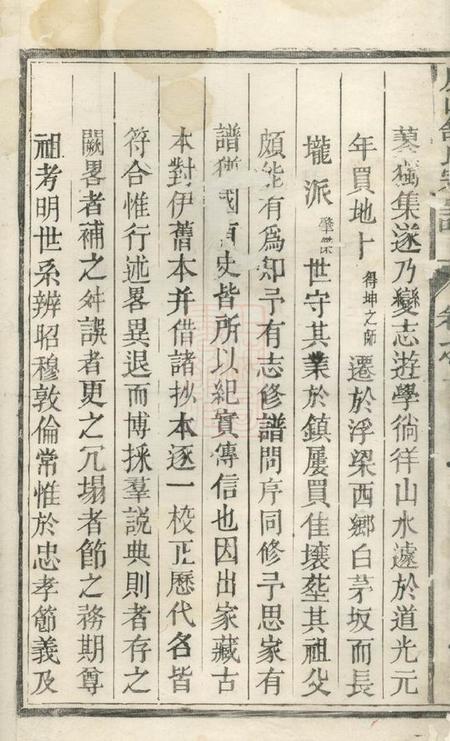 蓁蕪集遂乃變志遊學徜徉山水遽於道光元
年買地卜得坤之師遷於浮梁西鄉白茅坂而長
壠派肇傑世守其業於鎮屢買佳壤塟其祖父
頗能有為知予有志修譜問序同修予思家有
譜猶國有史皆所以紀實傳信也因出家藏古
本對伊舊本并借諸抄本逐一校正歷代名皆
符合惟行述畧異退而博採羣説典則者存之
闕畧者補之舛誤者更之冗塌者節之務期尊
祖考明世系辨昭穆敦倫常惟於忠孝節義及